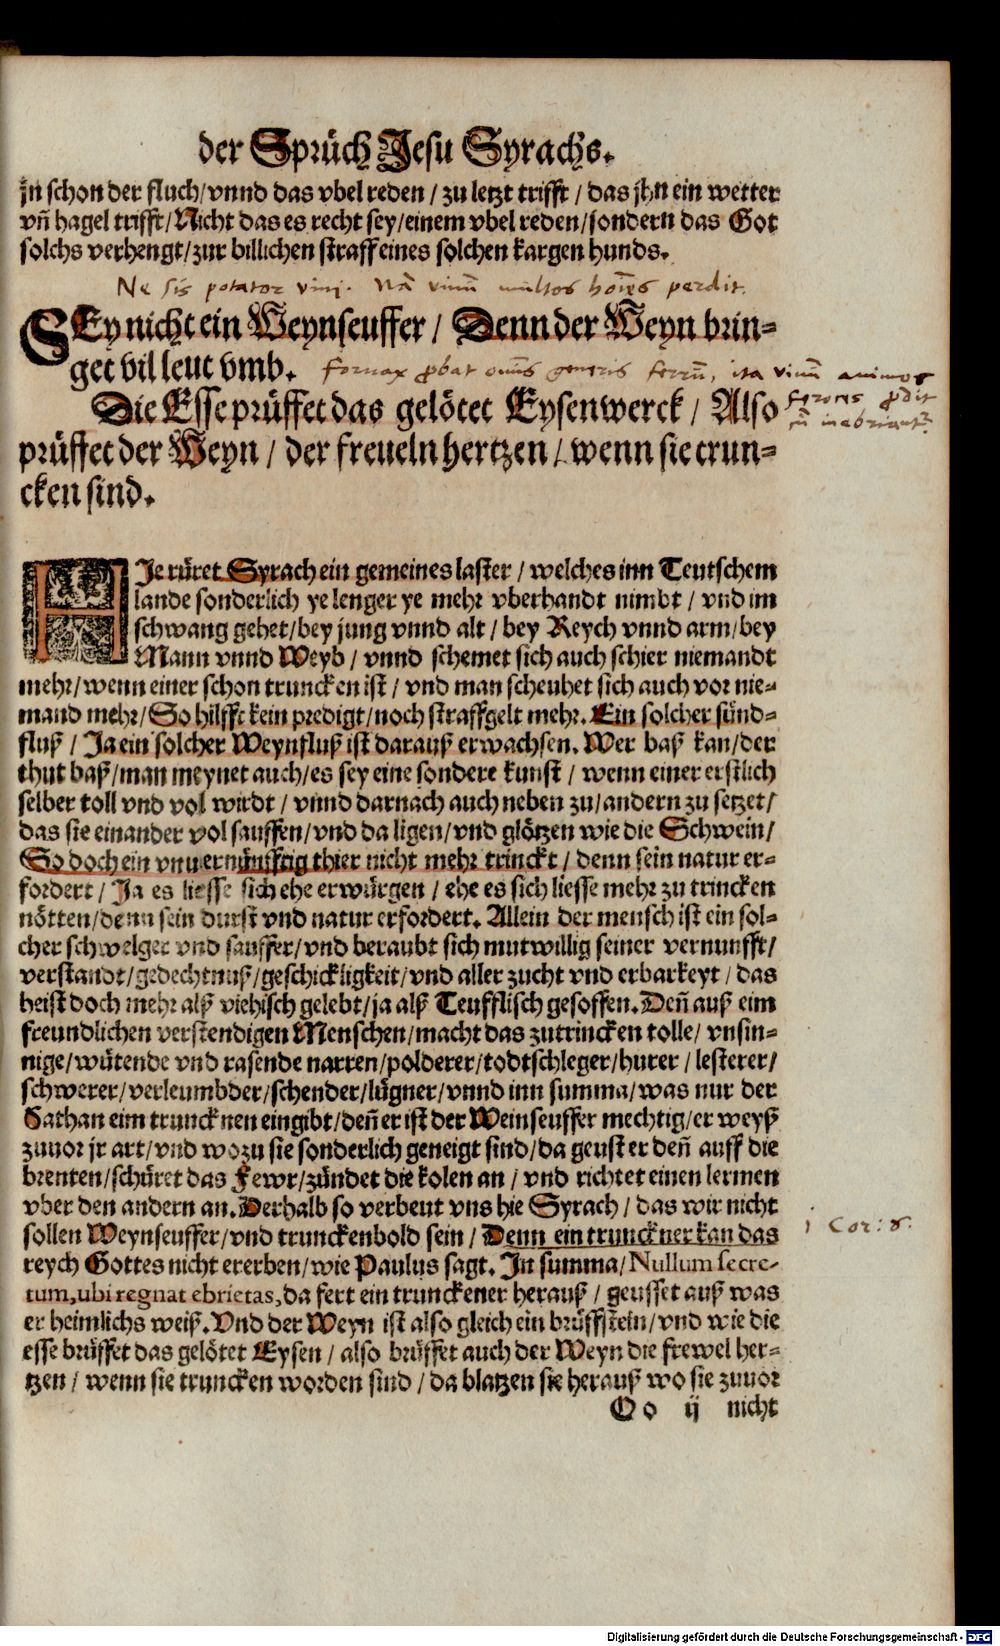 der Sprüch Jesu Syrachs.
jn schon der fluch/vnnd das vbel reden / zu letzt trifft / das jhn ein wetter
vñ hagel trifft/Nicht das es recht sey/einem vbel reden/sondern das Got
solchs verhengt/zur billichen straff eines solchen kargen hunds.
Ne sis potator vinj. Nā vinū multos hoīes perdit.
SEy nicht ein Weynseuffer / Denn der Weyn brin=
get vil leut vmb.
fornax ꝓbat omīs generis ferrū, ita vinū animos
feroces ꝓdit
cū inebriant.
Die Esse prüffet das gelötet Eysenwerck / Also
prüffet der Weyn / der freueln hertzen / wenn sie trun=
cken sind.
HJe rüret Syrach ein gemeines laster / welches inn Teutschem
lande sonderlich ye lenger ye mehr vberhandt nimbt / vnd im
schwang gehet/bey jung vnnd alt / bey Reych vnnd arm/bey
Mann vnnd Weyb / vnnd schemet sich auch schier niemandt
mehr/wenn einer schon truncken ist / vnd man scheuhet sich auch vor nie=
mand mehr/So hilfft kein predigt/noch straffgelt mehr. Ein solcher sünd=
fluß / Ja ein solcher Weynfluß ist darauß erwachsen. Wer baß kan/der
thut baß/man meynet auch/es sey eine sondere kunst / wenn einer erstlich
selber toll vnd vol wirdt / vnnd darnach auch neben zu/andern zu setzet/
das sie einander vol sauffen/vnd da ligen/vnd glötzen wie die Schwein/
So doch ein vnuernünfftig thier nicht mehr trinckt / denn sein natur er=
fordert / Ja es liesse sich ehe erwürgen / ehe es sich liesse mehr zu trincken
nötten/denn sein durst vnd natur erfordert. Allein der mensch ist ein sol=
cher schwelger vnd sauffer/vnd beraubt sich mutwillig seiner vernunfft/
verstandt/gedechtnuß/geschickligkeit/vnd aller zucht vnd erbarkeyt / das
heist doch mehr alß viehisch gelebt/ja alß Teufflisch gesoffen. Deñ auß eim
freundlichen verstendigen Menschen/macht das zutrincken tolle/ vnsin=
nige/wütende vnd rasende narren/polderer/todtschleger/hurer/ lesterer/
schwerer/verleumbder/schender/lügner/vnnd inn summa/was nur der
Sathan eim trunck nen eingibt/deñ er ist der Weinseuffer mechtig/er weyß
zuuor jr art/vnd wozu sie sonderlich geneigt sind/da geust er deñ auff die
brenten/schüret das Fewr/zündet die kolen an / vnd richtet einen lermen
vber den andern an. Derhalb so verbeut vns hie Syrach / das wir nicht
sollen Weynseuffer/vnd trunckenbold sein / Denn ein trunckner kan das
1 Cor: 6.
reych Gottes nicht ererben/wie Paulus sagt. In summa/Nullum secre-
tum, ubi regnat ebrietas, da fert ein trunckener herauß / geusset auß was
er heimlichs weiß. Vnd der Weyn ist also gleich ein brüffstein/vnd wie die
esse brüffet das gelötet Eysen / also brüffet auch der Weyn die frewel her=
tzen / wenn sie truncken worden sind / da blatzen sie herauß wo sie zuuor
Oo ij nicht
Digitalisierung gefördert durch die Deutsche Forschungsgemeinschaft - DFG